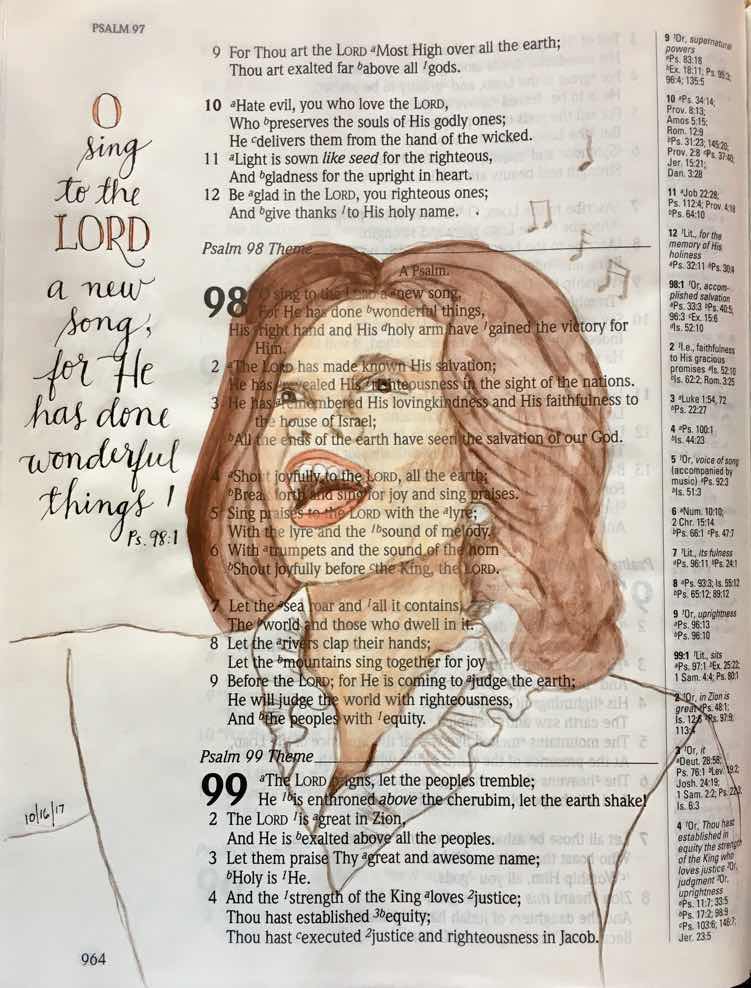 PSALM 97
O
sing
to the
LORD
a new
song;
for He
has done
wonderful
things!
Ps. 98:1
10/16/17
964
9 For Thou art the LORD ᵃMost High over all the earth;
Thou art exalted far ᵇabove all ¹gods.
10 ᵃHate evil, you who love the LORD,
Who ᵇpreserves the souls of His godly ones;
He ᶜdelivers them from the hand of the wicked.
11 ᵃLight is sown like seed for the righteous,
And ᵇgladness for the upright in heart.
12 Be ᵃglad in the LORD, you righteous ones;
And ᵇgive thanks ¹to His holy name.
Psalm 98 Theme
A Psalm.
98 O sing to the LORD a ᵃnew song,
For He has done ᵇwonderful things,
His right hand and His ᵈholy arm have ¹gained the victory for
Him.
2 ᵃThe LORD has made known His salvation;
He has revealed His ¹righteousness in the sight of the nations.
3 He has ᵃremembered His lovingkindness and His faithfulness to
the house of Israel;
ᵇAll the ends of the earth have seen the salvation of our God.
4 ᵃShout joyfully to the LORD, all the earth;
ᵇBreak forth and sing for joy and sing praises.
5 Sing praises to the LORD with the ᵃlyre;
With the lyre and the ¹ᵇsound of melody.
6 With ᵃtrumpets and the sound of the horn
ᵇShout joyfully before ᶜthe King, the LORD.
7 Let the ᵃsea roar and ¹all it contains,
The ᵇworld and those who dwell in it.
8 Let the ᵃrivers clap their hands;
Let the ᵇmountains sing together for joy
9 Before the LORD; for He is coming to ᵃjudge the earth;
He will judge the world with righteousness,
And ᵇthe peoples with ¹equity.
Psalm 99 Theme
99 ᵃThe LORD reigns, let the peoples tremble;
He ¹ᵇis enthroned above the cherubim, let the earth shake!
2 The LORD ¹is ᵃgreat in Zion,
And He is ᵇexalted above all the peoples.
3 Let them praise Thy ᵃgreat and awesome name;
ᵇHoly is ¹He.
4 And the ¹strength of the King ᵃloves ²justice;
Thou hast established ³ᵇequity;
Thou hast ᶜexecuted ²justice and righteousness in Jacob.
9 ¹Or, supernatural
powers
ᵃPs. 83:18
ᵇEx. 18:11; Ps. 95:3;
96:4; 135:5
10 ᵃPs. 34:14;
Prov. 8:13;
Amos 5:15;
Rom. 12:9
ᵇPs. 31:23; 145:20;
Prov. 2:8 ᶜPs. 37:40;
Jer. 15:21;
Dan. 3:28
11 ᵃJob 22:28;
Ps. 112:4; Prov. 4:18
ᵇPs. 64:10
12 ¹Lit., for the
memory of His
holiness
ᵃPs. 32:11 ᵇPs. 30:4
98:1 ¹Or, accom-
plished salvation
ᵃPs. 33:3 ᵇPs. 40:5;
96:3 ᶜEx. 15:6
ᵈIs. 52:10
2 ¹I.e., faithfulness
to His gracious
promises ᵃIs. 52:10
ᵇIs. 62:2; Rom. 3:25
3 ᵃLuke 1:54, 72
ᵇPs. 22:27
4 ᵃPs. 100:1
ᵇIs. 44:23
5 ¹Or, voice of song
(accompanied by
music) ᵃPs. 92:3
ᵇIs. 51:3
6 ᵃNum. 10:10;
2 Chr. 15:14
ᵇPs. 66:1 ᶜPs. 47:7
7 ¹Lit., its fulness
ᵃPs. 96:11 ᵇPs. 24:1
8 ᵃPs. 93:3; Is. 55:12
ᵇPs. 65:12; 89:12
9 ¹Or, uprightness
ᵃPs. 96:13
ᵇPs. 96:10
99:1 ¹Lit., sits
ᵃPs. 97:1 ᵇEx. 25:22;
1 Sam. 4:4; Ps. 80:1
2 ¹Or, in Zion is
great ᵃPs. 48:1;
Is. 12:6 ᵇPs. 97:9;
113:4
3 ¹Or, it
ᵃDeut. 28:58;
Ps. 76:1 ᵇLev. 19:2;
Josh. 24:19;
1 Sam. 2:2; Ps. 22:3;
Is. 6:3
4 ¹Or, Thou hast
established in
equity the strength
of the King who
loves justice ²Or,
judgment ³Or,
uprightness
ᵃPs. 11:7; 33:5
ᵇPs. 17:2; 98:9
ᶜPs. 103:6; 146:7;
Jer. 23:5